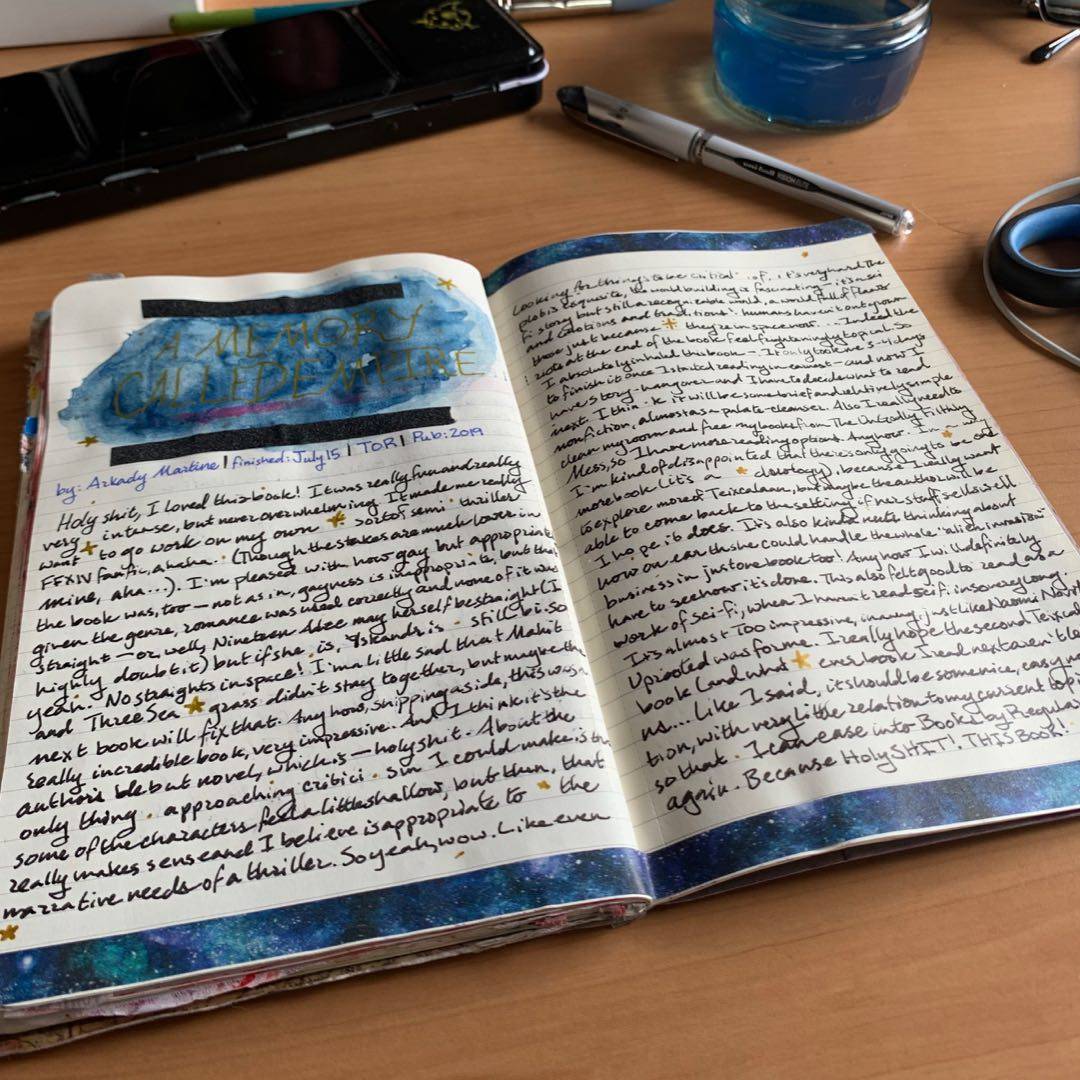 A MEMORY
CALLED EMPIRE
by: Arkady Martine | finished: July 15 | TOR | Pub: 2019
Holy shit, I loved this book! It was really fun and really
very intense, but never overwhelming. It made me really
want to go work on my own sort of semi-thriller
FFXIV fanfic, ahaha.. (Though the stakes are much lower in
mine, aha...). I'm pleased with how gay but appropriate
the book was, too — not as in, gayness is inappropriate, but that
given the genre, romance was used correctly and none of it was
straight — or, well, Nineteen Adze may herself be straight (I
highly doubt it) but if she is, Yskandr is still bi. So
yeah. No straights in space! I'm a little sad that Mahit
and Three Seagrass didn't stay together, but maybe the
next book will fix that. Anyhow, shipping aside, this was a
really incredible book, very impressive. And I think it's the
author's debut novel, which is — holy shit. About the
only thing approaching criticism I could make is th
some of the characters feel a little shallow, but then, that
really makes sense and I believe is appropriate to the
narrative needs of a thriller. So yeah, wow. Like even
looking for things to be critical of, it's very hard. The
plot is exquisite, the world building is fascinating — it's a sci
fi story but still a recognizable world, a world full of flaws
and emotions and traditions. humans haven't outgrown
those just because they're in space now... Indeed the
riots at the end of the book feel frighteningly topical. So
I absolutely inhaled this book — It only took me 3-4 days
to finish it once I started reading in earnest — and now I
have story-hangover and I have to decide what to read
next. I think it will be some brief and relatively simple
nonfiction, almost as a palate-cleanser. Also I really need to
clean my room and free my books from The Ungodly Filthy
Mess, so I have more reading options. Anyhow. In
I'm kind of disappointed that there's only going to be one
more book (it's a duology), because I really want
to explore more of Teixcalaan, but maybe the author will be
able to come back to the setting if her stuff sells well
I hope it does. It is also kinda neat thinking about
how on earth she could handle the whole "alien invasion"
business in just one book too! Anyhow I will definitely
have to see how it's done. This also felt good to read as a
work of sci-fi, when I haven't read sci fi in so very long.
It's almost too impressive, in a way, just like Naomi Novik
Uprooted was for me. I really hope the second Teixcal
book (and whatever book I read next aren't
us.... Like I said, it should be some nice, easy no
tion, with very little relation to my current topi
so that I can ease into Books by Regula
again. Because Holy SHIT! THIS BOOK!